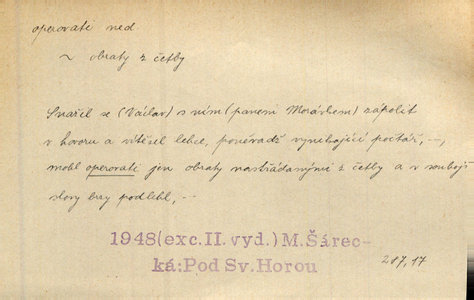 operovati ned.
~ obraty z četby
Snažil se (Václav) s ním (panem Morávkem) zápolit
v hovoru a vítězil lehce, poněvadž vynikající počtář, –,
mohl operovati jen obraty nastřádanými z četby a v souboji
slovy brzy podlehl, –
1948(exc.II.vyd.)M.Šárec-
ká:Pod Sv.Horou
217,17